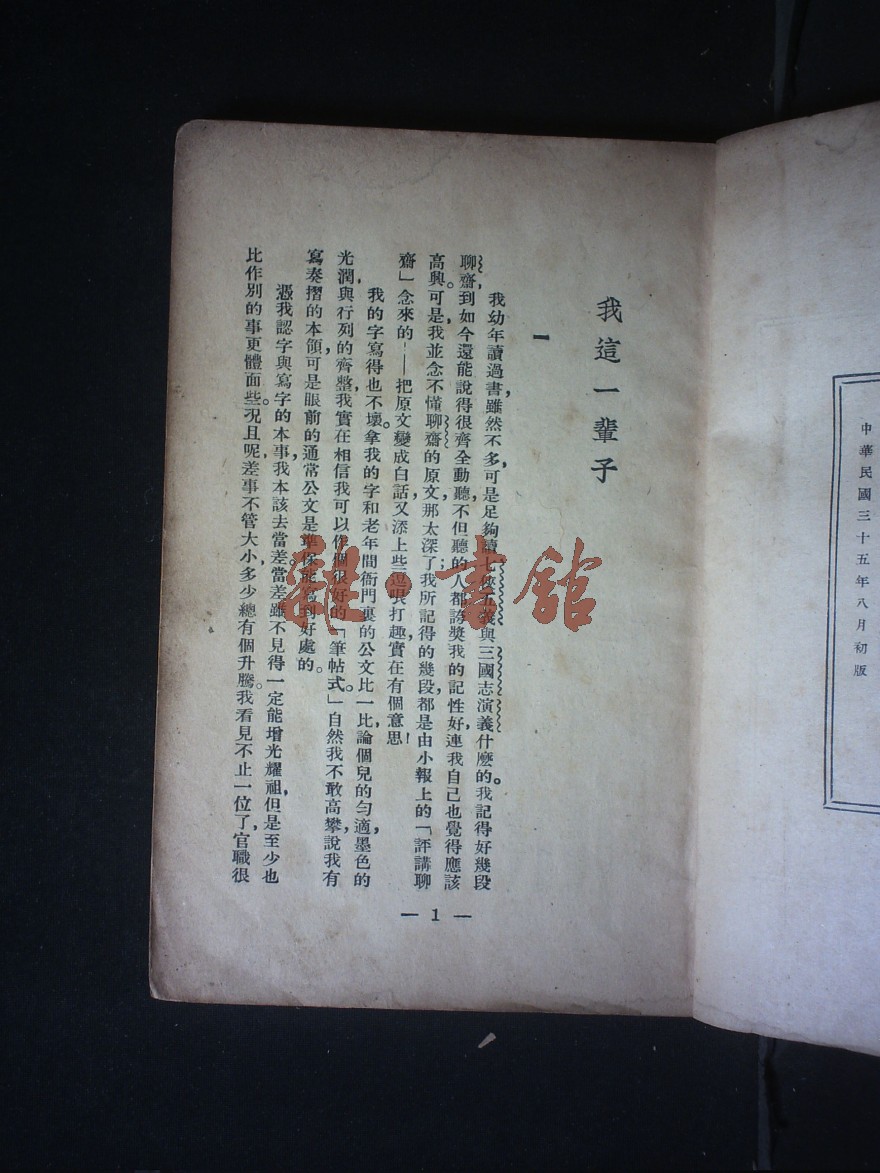 中華民國三十五年八月初版
我這一輩子
一
我幼年讀過書，雖然不多，可是足夠讀七俠五義與三國志演義什麼的。我記得好幾段
聊齋，到如今還能說得很齊全動聽，不但聽的人都誇獎我的記性好，連我自己也覺得應該
高興。可是，我並念不懂聊齋的原文，那太深了；我所記得的幾段，都是由小報上的「評講聊
齋」念來的——把原文變成白話，又添上些逗哏打趣，實在有個意思！
我的字寫得也不壞。拿我的字和老年間衙門裏的公文比一比，論個兒的勻適，墨色的
光潤，與行列的齊整，我實在相信我可以作個很好的「筆帖式」。自然我不敢高攀，說我有
寫奏摺的本領，可是眼前的通常公文是準保能寫到好處的。
憑我認字與寫字的本事，我本該去當差。當差雖不見得一定能增光耀祖，但是至少也
比作別的事更體面些。况且呢，差事不管大小，多少總有個升騰。我看見不止一位了，官職很
— 1 —
雜·書館